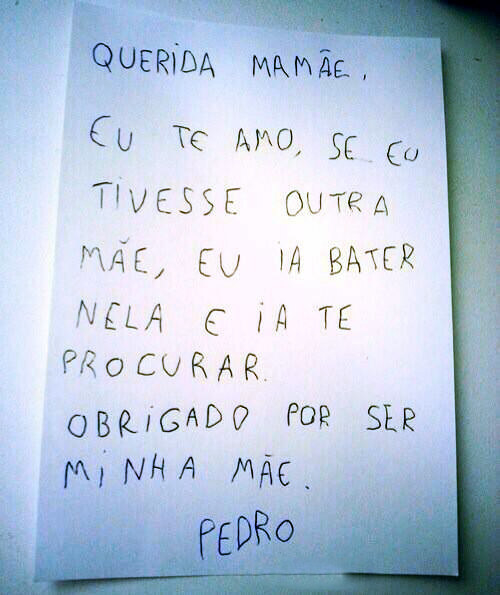 QUERIDA MAMÃE,
EU TE AMO, SE EU
TIVESSE OUTRA
MÃE, EU IA BATER
NELA E IA TE
PROCURAR.
OBRIGADO POR SER
MINHA MÃE.
PEDRO